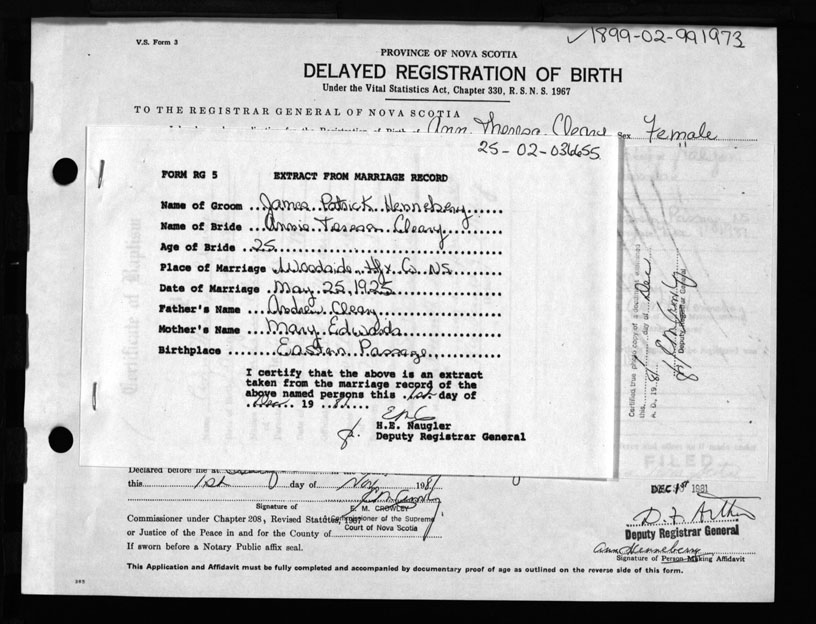 V.S. Form 3
✓1899-02-991973
PROVINCE OF NOVA SCOTIA
DELAYED REGISTRATION OF BIRTH
Under the Vital Statistics Act, Chapter 330, R.S.N.S. 1967
TO THE REGISTRAR GENERAL OF NOVA SCOTIA
Ann Theresa Cleary Sex Female
25-02-036655
FORM RG 5 EXTRACT FROM MARRIAGE RECORD
Name of Groom James Patrick Henneberry
Name of Bride Annie Teresa Cleary
Age of Bride 25
Place of Marriage Woodside Hfx Co NS
Date of Marriage May 25, 1925
Father's Name Andrew Cleary
Mother's Name Mary Edwards
Birthplace Eastern Passage
I certify that the above is an extract
taken from the marriage record of the
above named persons this 1st day of
Dec 19 81
H.E. Naugler
Deputy Registrar General
Certificate of Baptism
Certified true photo copy of
this day of Dec
A. D., 19 81
Deputy Registrar General
FILED
Declared before me at
this 1st day of Nov 1981
Signature of E. M. CROWLEY
Commissioner under Chapter 208, Revised Statutes, 1967
Commissioner of the Supreme
Court of Nova Scotia
or Justice of the Peace in and for the County of
If sworn before a Notary Public affix seal.
DEC 1st 1981
D. F. Arthur
Deputy Registrar General
Ann Henneberry
Signature of Person Making Affidavit
This Application and Affidavit must be fully completed and accompanied by documentary proof of age as outlined on the reverse side of this form.